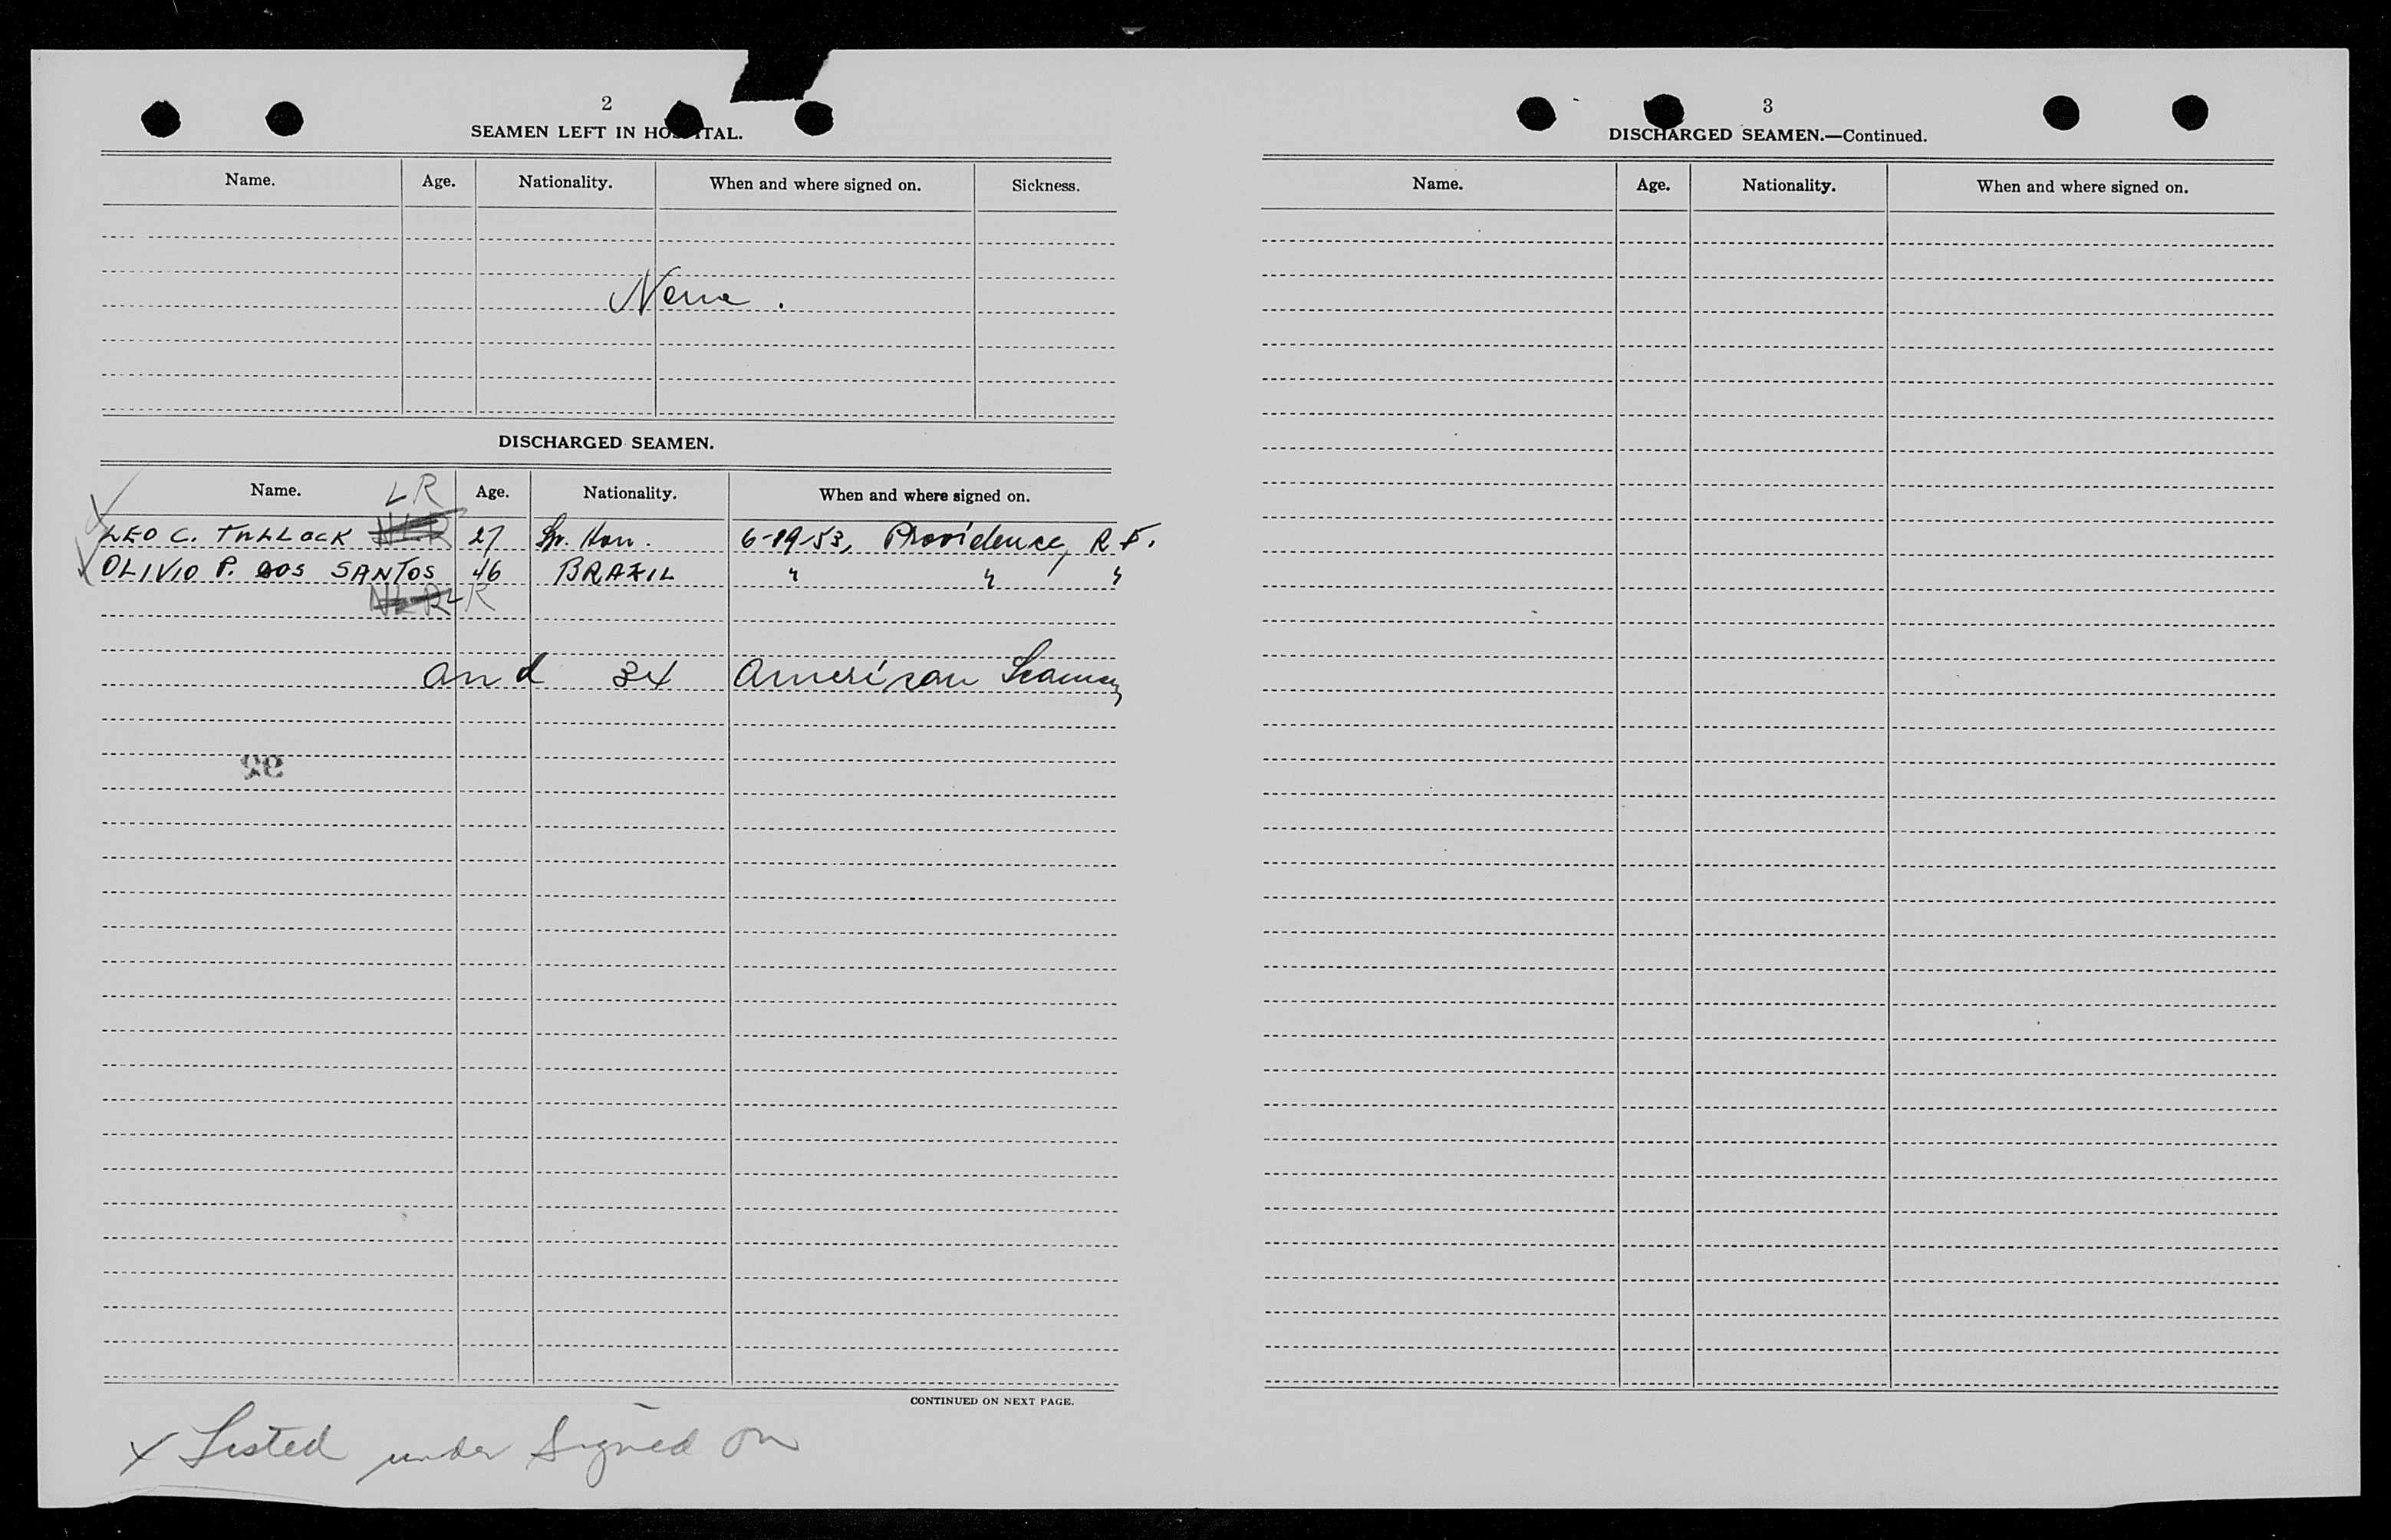 2
SEAMEN LEFT IN HOSPITAL.
Name. Age. Nationality. When and where signed on. Sickness.
None.
DISCHARGED SEAMEN.
Name. LR Age. Nationality. When and where signed on.
LEO C. TULLOCK NLR 27 Sp. Hon. 6-19-53, Providence, R.I.
OLIVIO P. DOS SANTOS 46 BRAZIL " " "
NLR LR
and 34 American Seamen
CONTINUED ON NEXT PAGE.
x Listed under Signed on
3
DISCHARGED SEAMEN.—Continued.
Name. Age. Nationality. When and where signed on.